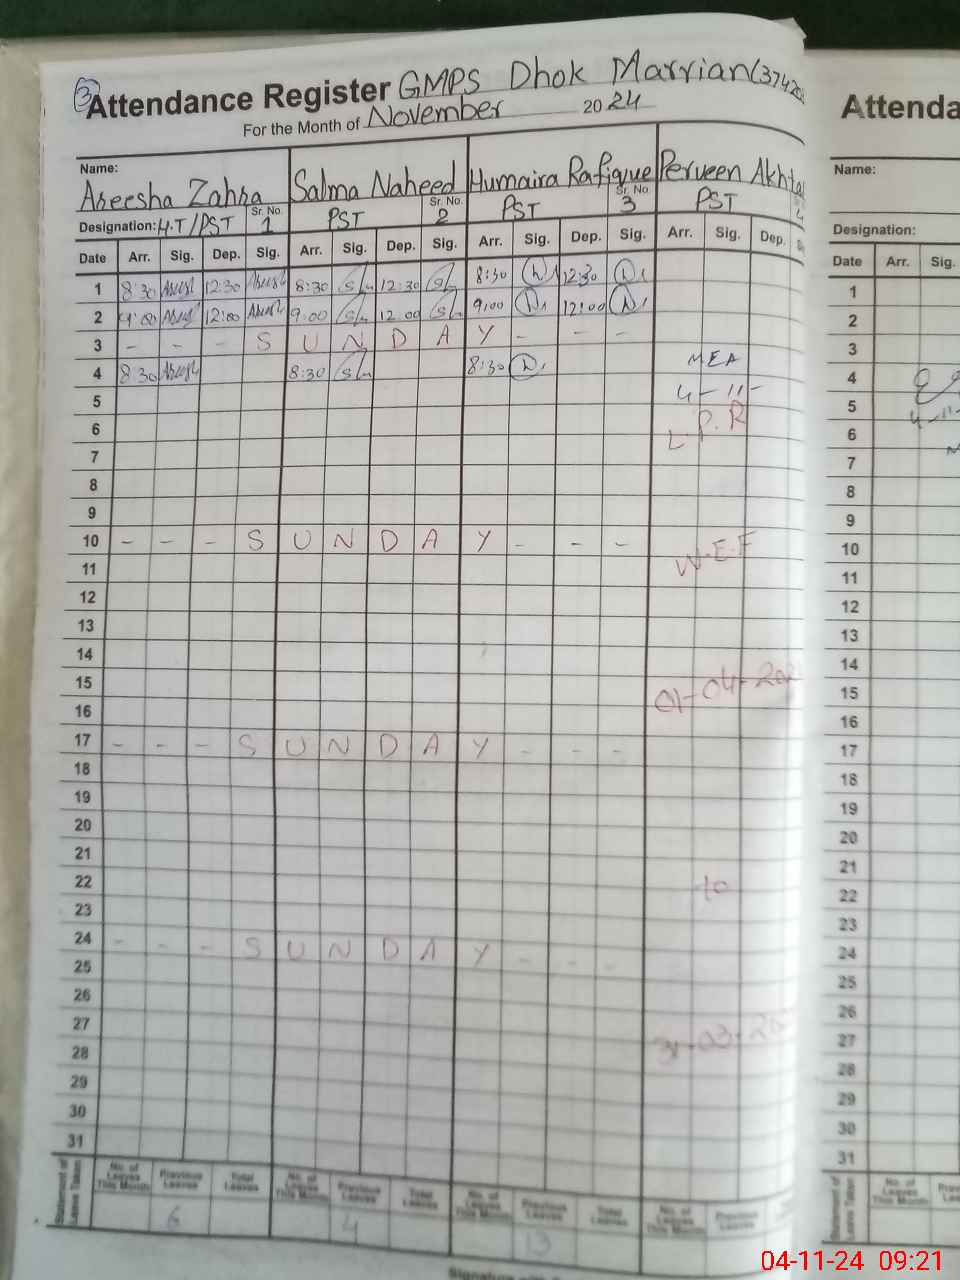 3
Attendance Register GMPS Dhok Marrian (3742
For the Month of November 2024
Name:
Aseesha Zahra Salma Naheed Humaira Rafique Perveen Akhta
Designation: H.T/PST Sr. No. 1 PST Sr. No. 2 PST Sr. No. 3 PST
Date Arr. Sig. Dep. Sig. Arr. Sig. Dep. Sig. Arr. Sig. Dep. Sig. Arr. Sig. Dep.
1 8:30 12:30 8:30 12:30 8:30 12:30
2 9:00 12:00 9:00 12:00 9:00 12:00
3 - - - S U N D A Y - - -
4 8:30 8:30 8:30 MEA
5 4-11-
6 L.P.R
7
8
9
10 - - - S U N D A Y - - -
11 W.E.F
12
13
14
15 01-04-202
16
17 - - - S U N D A Y - - -
18
19
20
21
22 to
23
24 - - - S U N D A Y - - -
25
26
27 31-03-2
28
29
30
31
Statement of Leave Taken No. of Leaves This Month Previous Leaves Total Leaves No. of Leaves This Month Previous Leaves Total Leaves No. of Leaves This Month Previous Leaves Total Leaves No. of Leaves This Month Previous Leaves
6 4 13
Attenda
Name:
Designation:
Date Arr. Sig.
1
2
3
4
5 4-11-
6
7
8
9
10
11
12
13
14
15
16
17
18
19
20
21
22
23
24
25
26
27
28
29
30
31
Statement of Leave Taken No. of Leaves This Month
04-11-24 09:21